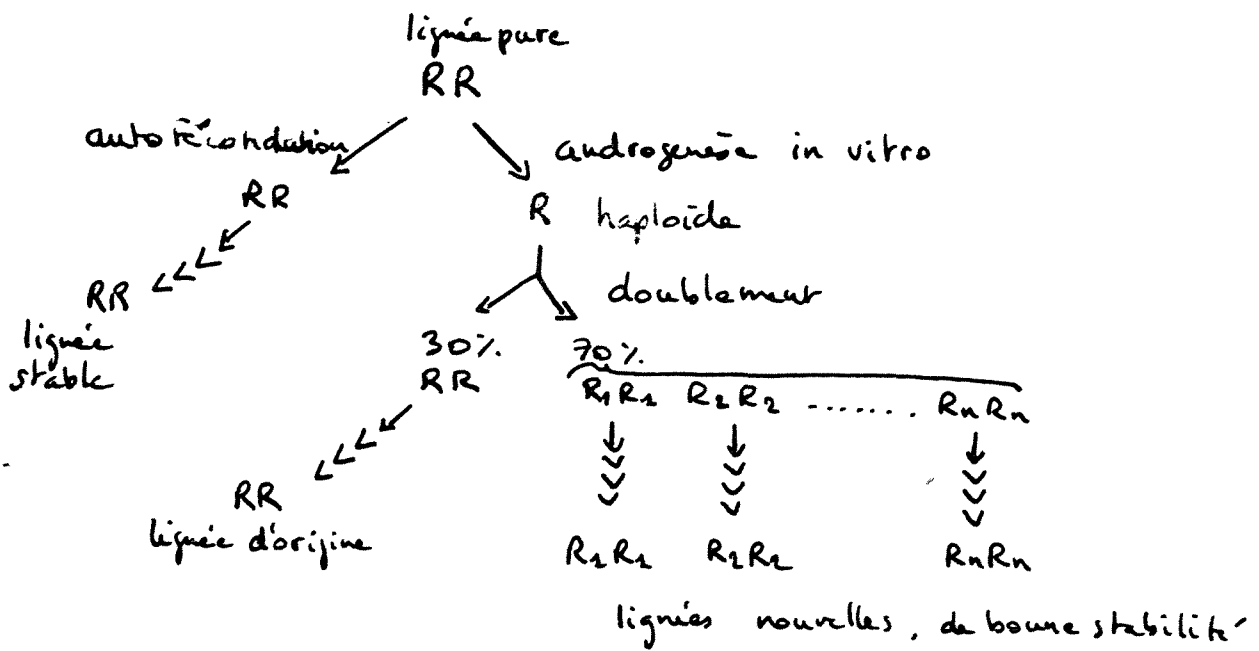 lignée pure
RR
autofécondation
androgenèse in vitro
RR
R haploïde
doublement
RR
lignée
stable
30%
RR
70%
R1R1 R2R2 ....... RnRn
RR
lignée d'origine
R1R1 R2R2 RnRn
lignées nouvelles, de bonne stabilité